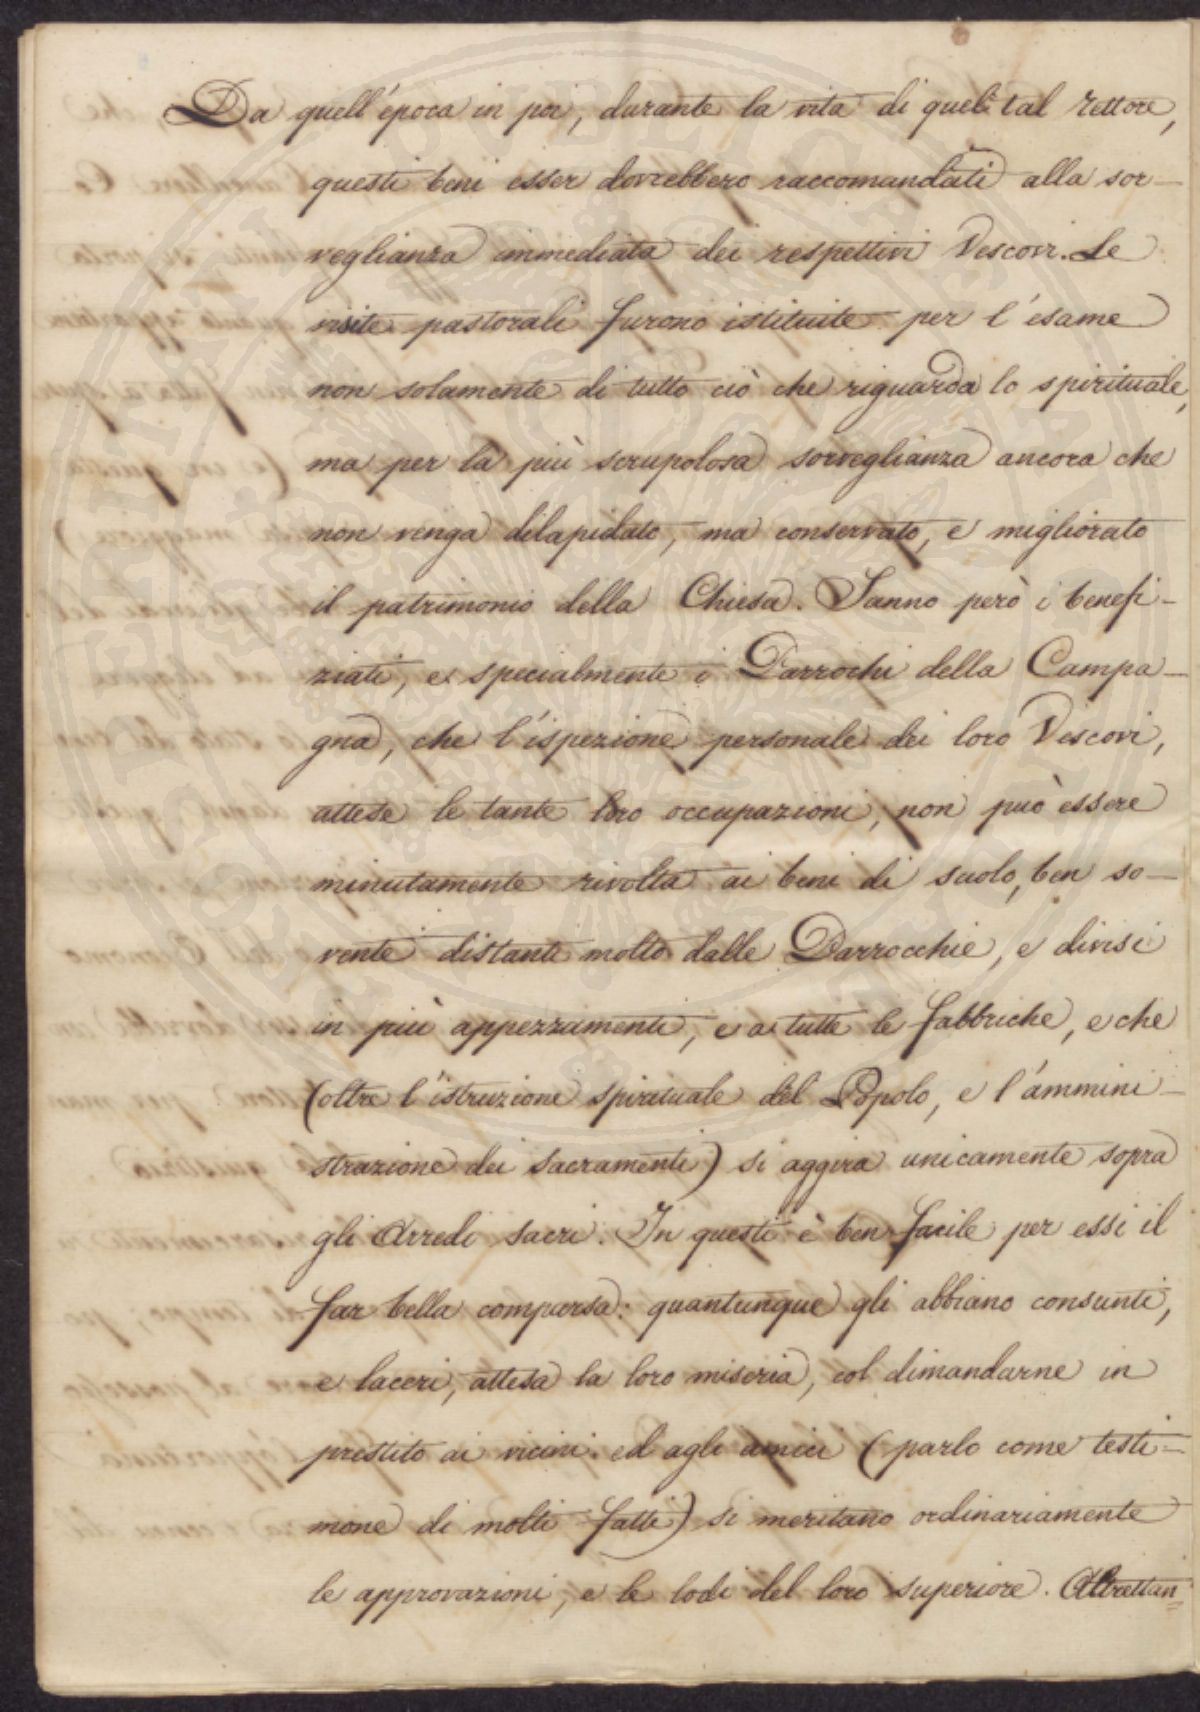 Da quell'época in poi, durante la vita di quel tal Rettore,
questi beni esser dovrebbero raccomandati alla sor-
veglianza immediata dei respettivi Vescovi. Le
visite pastorali furono istituite per l'esame
non solamente di tutto ciò che riguarda lo spirituale,
ma per la più scrupolosa sorveglianza ancora che
non venga dilapidato, ma conservato, e migliorato
il patrimonio della Chiesa. Sanno però i benefi-
ziati, e specialmente i Parrochi della Campa-
gna, che l'ispezione personale dei loro Vescovi,
attese le tante loro occupazioni, non può essere
minutamente rivolta ai beni di suolo, ben so-
vente distanti molto dalle Parrocchie, e divisi
in più appezzamenti, e a tutte le fabbriche, e che
(oltre l'istruzione spirituale del Popolo, e l'ammini-
strazione dei sacramenti) si aggira unicamente sopra
gli Arredi sacri. In questi è ben facile per essi il
far bella comparsa: quantunque gli abbiano consunti,
e laceri, attesa la loro miseria, col dimandarne in
prestito ai vicini. ed agli amici (parlo come testi-
mone di molti fatti) si meritano ordinariamente
le approvazioni, e le lodi del loro superiore. Altrettan=